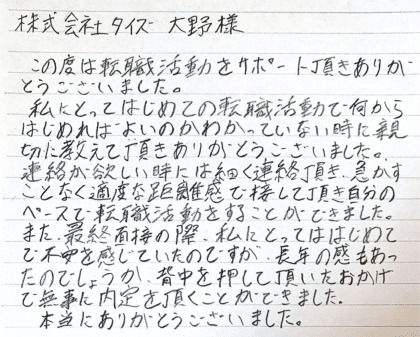 株式会社タイズ 大野様
この度は転職活動をサポート頂きありが
とうございました。
私にとってはじめての転職活動で何から
はじめればよいのかわかっていない時に親
切に教えて頂きありがとうございました。
連絡が欲しい時には細く連絡頂き、急かす
ことなく適度な距離感で接して頂き自分の
ペースで転職活動をすることができました。
また、最終面接の際、私にとってははじめて
で不安を感じていたのですが、長年の感もあっ
たのでしょうか、背中を押して頂いたおかげ
で無事に内定を頂くことができました。
本当にありがとうございました。